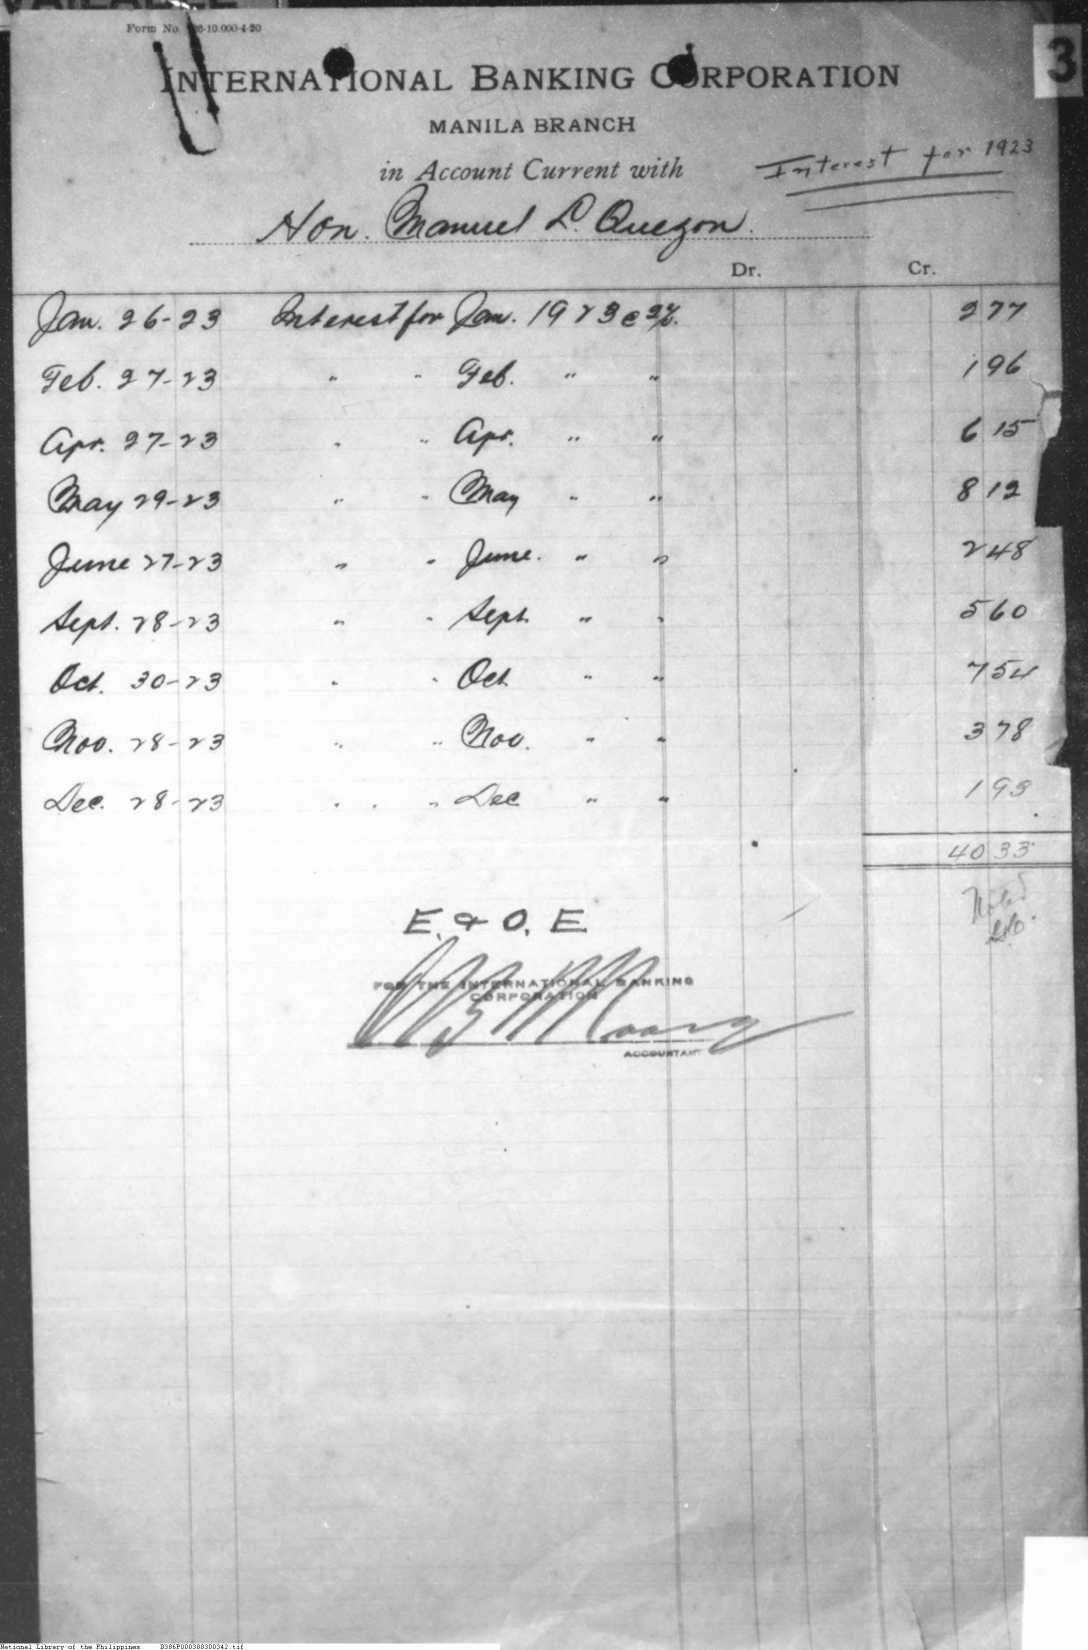 Form No.
3
INTERNATIONAL BANKING CORPORATION
MANILA BRANCH
in Account Current with
Interest for 1923
Hon. Manuel L. Quezon.
Dr. Cr.
Jan. 26-23 Interest for Jan. 1923 @ 2%. 2 77
Feb. 27-23 " " Feb. " " 1 96
Apr. 27-23 " " Apr. " " 6 15
May 29-23 " " May " " 8 12
June 27-23 " " June. " " 2 48
Sept. 28-23 " " Sept. " " 5 60
Oct. 30-23 " " Oct. " " 7 54
Nov. 28-23 " " Nov. " " 3 78
Dec. 28-23 " " " Dec " " 1 93
40 33
Noted
E. & O. E.
FOR THE INTERNATIONAL BANKING
CORPORATION
ACCOUNTANT
National Library of the Philippines D386P000388300342.tif